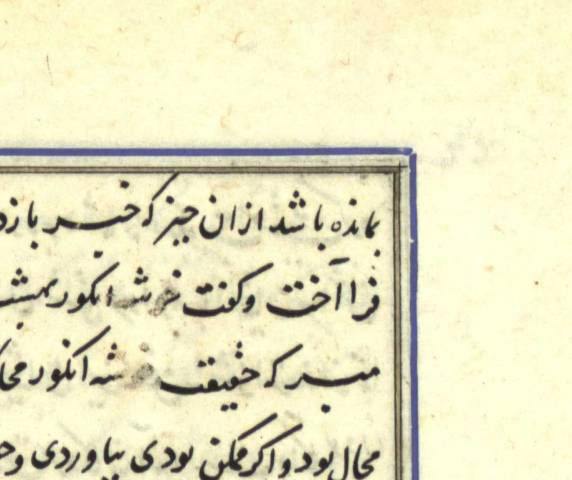 بمانده باشد از ان چیز که خبر باز د
فرا آخت و کفت خوشه انکور بهشت
مبر که حقیقت خوشه انکور محا
محال بود و اکر ممکن بودی بیاوردی و